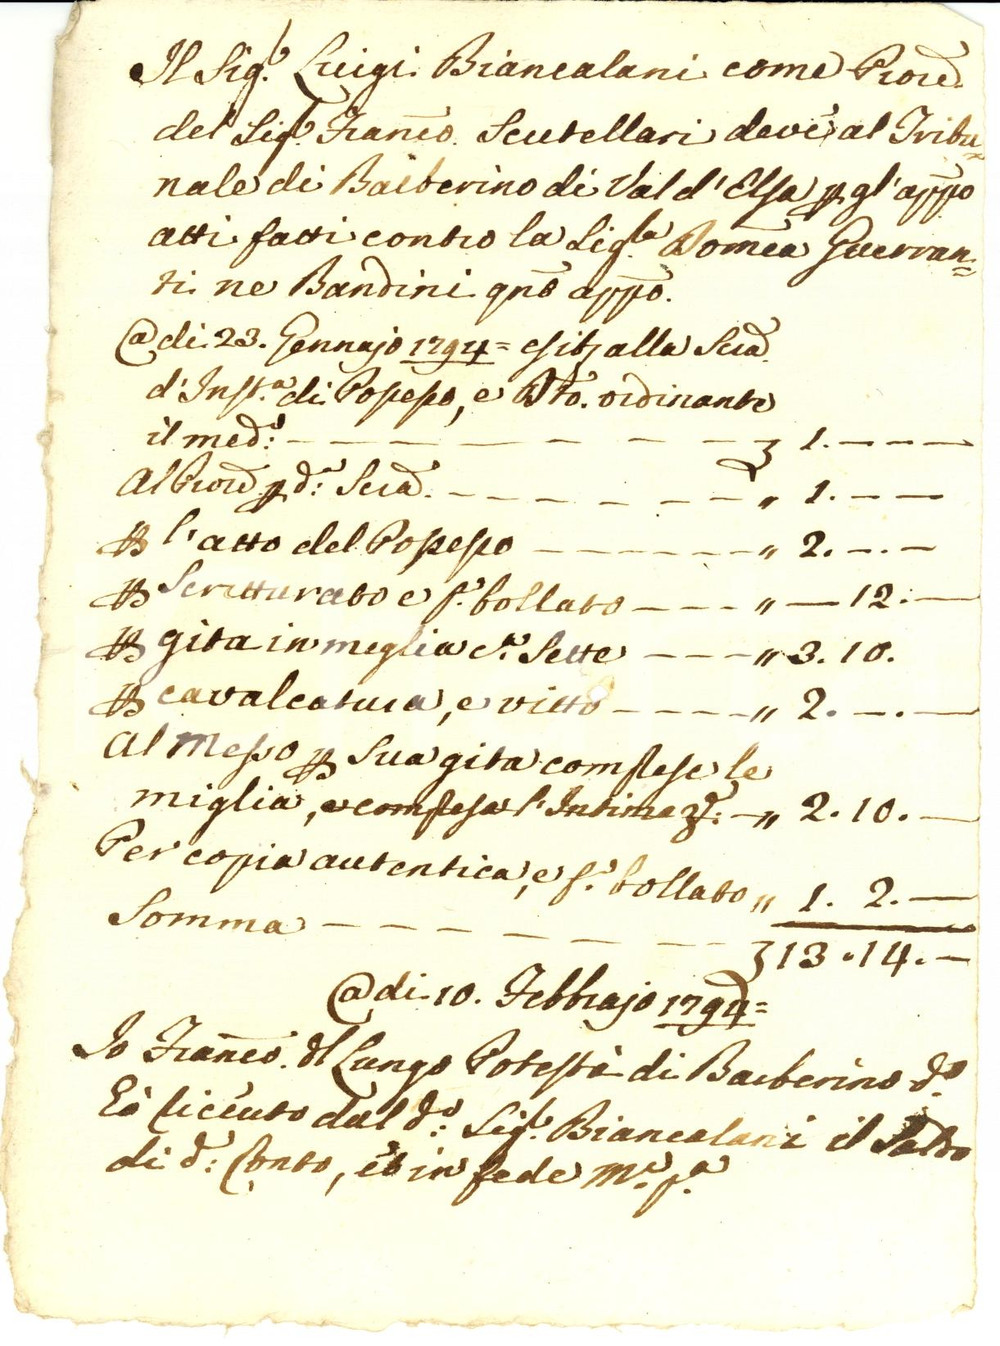 Il Sig.r Luigi Biancalani come Prore.
del Sig.r Franco. Scutellari deve al Tribu=
nale di Barberino di Val d'Elsa p gl'appo
atti fatti contro la Sig.ra Domca Guerran=
ti ne Bandini qnto appo.
@ di 23. Gennajo 1794= esibz alla Scra.
d'Inst.a di Possesso, e Dto. ordinante
il med.o: — — — — — — — £ 1. — — —
Al Prore p d.a Scra. — — — — — — " 1. — —
p l'atto del Possesso — — — — — " 2. —.—
p Scritturato e f.o bollato — — — " — 12. —
p gita in meglia n.o Sette — — — " 3. 10.
p cavalcatura, e vitto — — — — " 2. —.—
Al Messo p Sua gita comprese le
miglia, e compresa l'Intimaz.e: — " 2. 10. —
Per copia autentica, e f.o bollato " 1. 2. —
Somma — — — — — — £ 13. 14. —
@ di 10. Febbrajo 1794=
Io Franco. del Lungo Potestà di Barberino d.o
Eò ricevto dal d.o: Sig.r Biancalani il Saldo
di d.o: Conto, et in fede M.o p.a